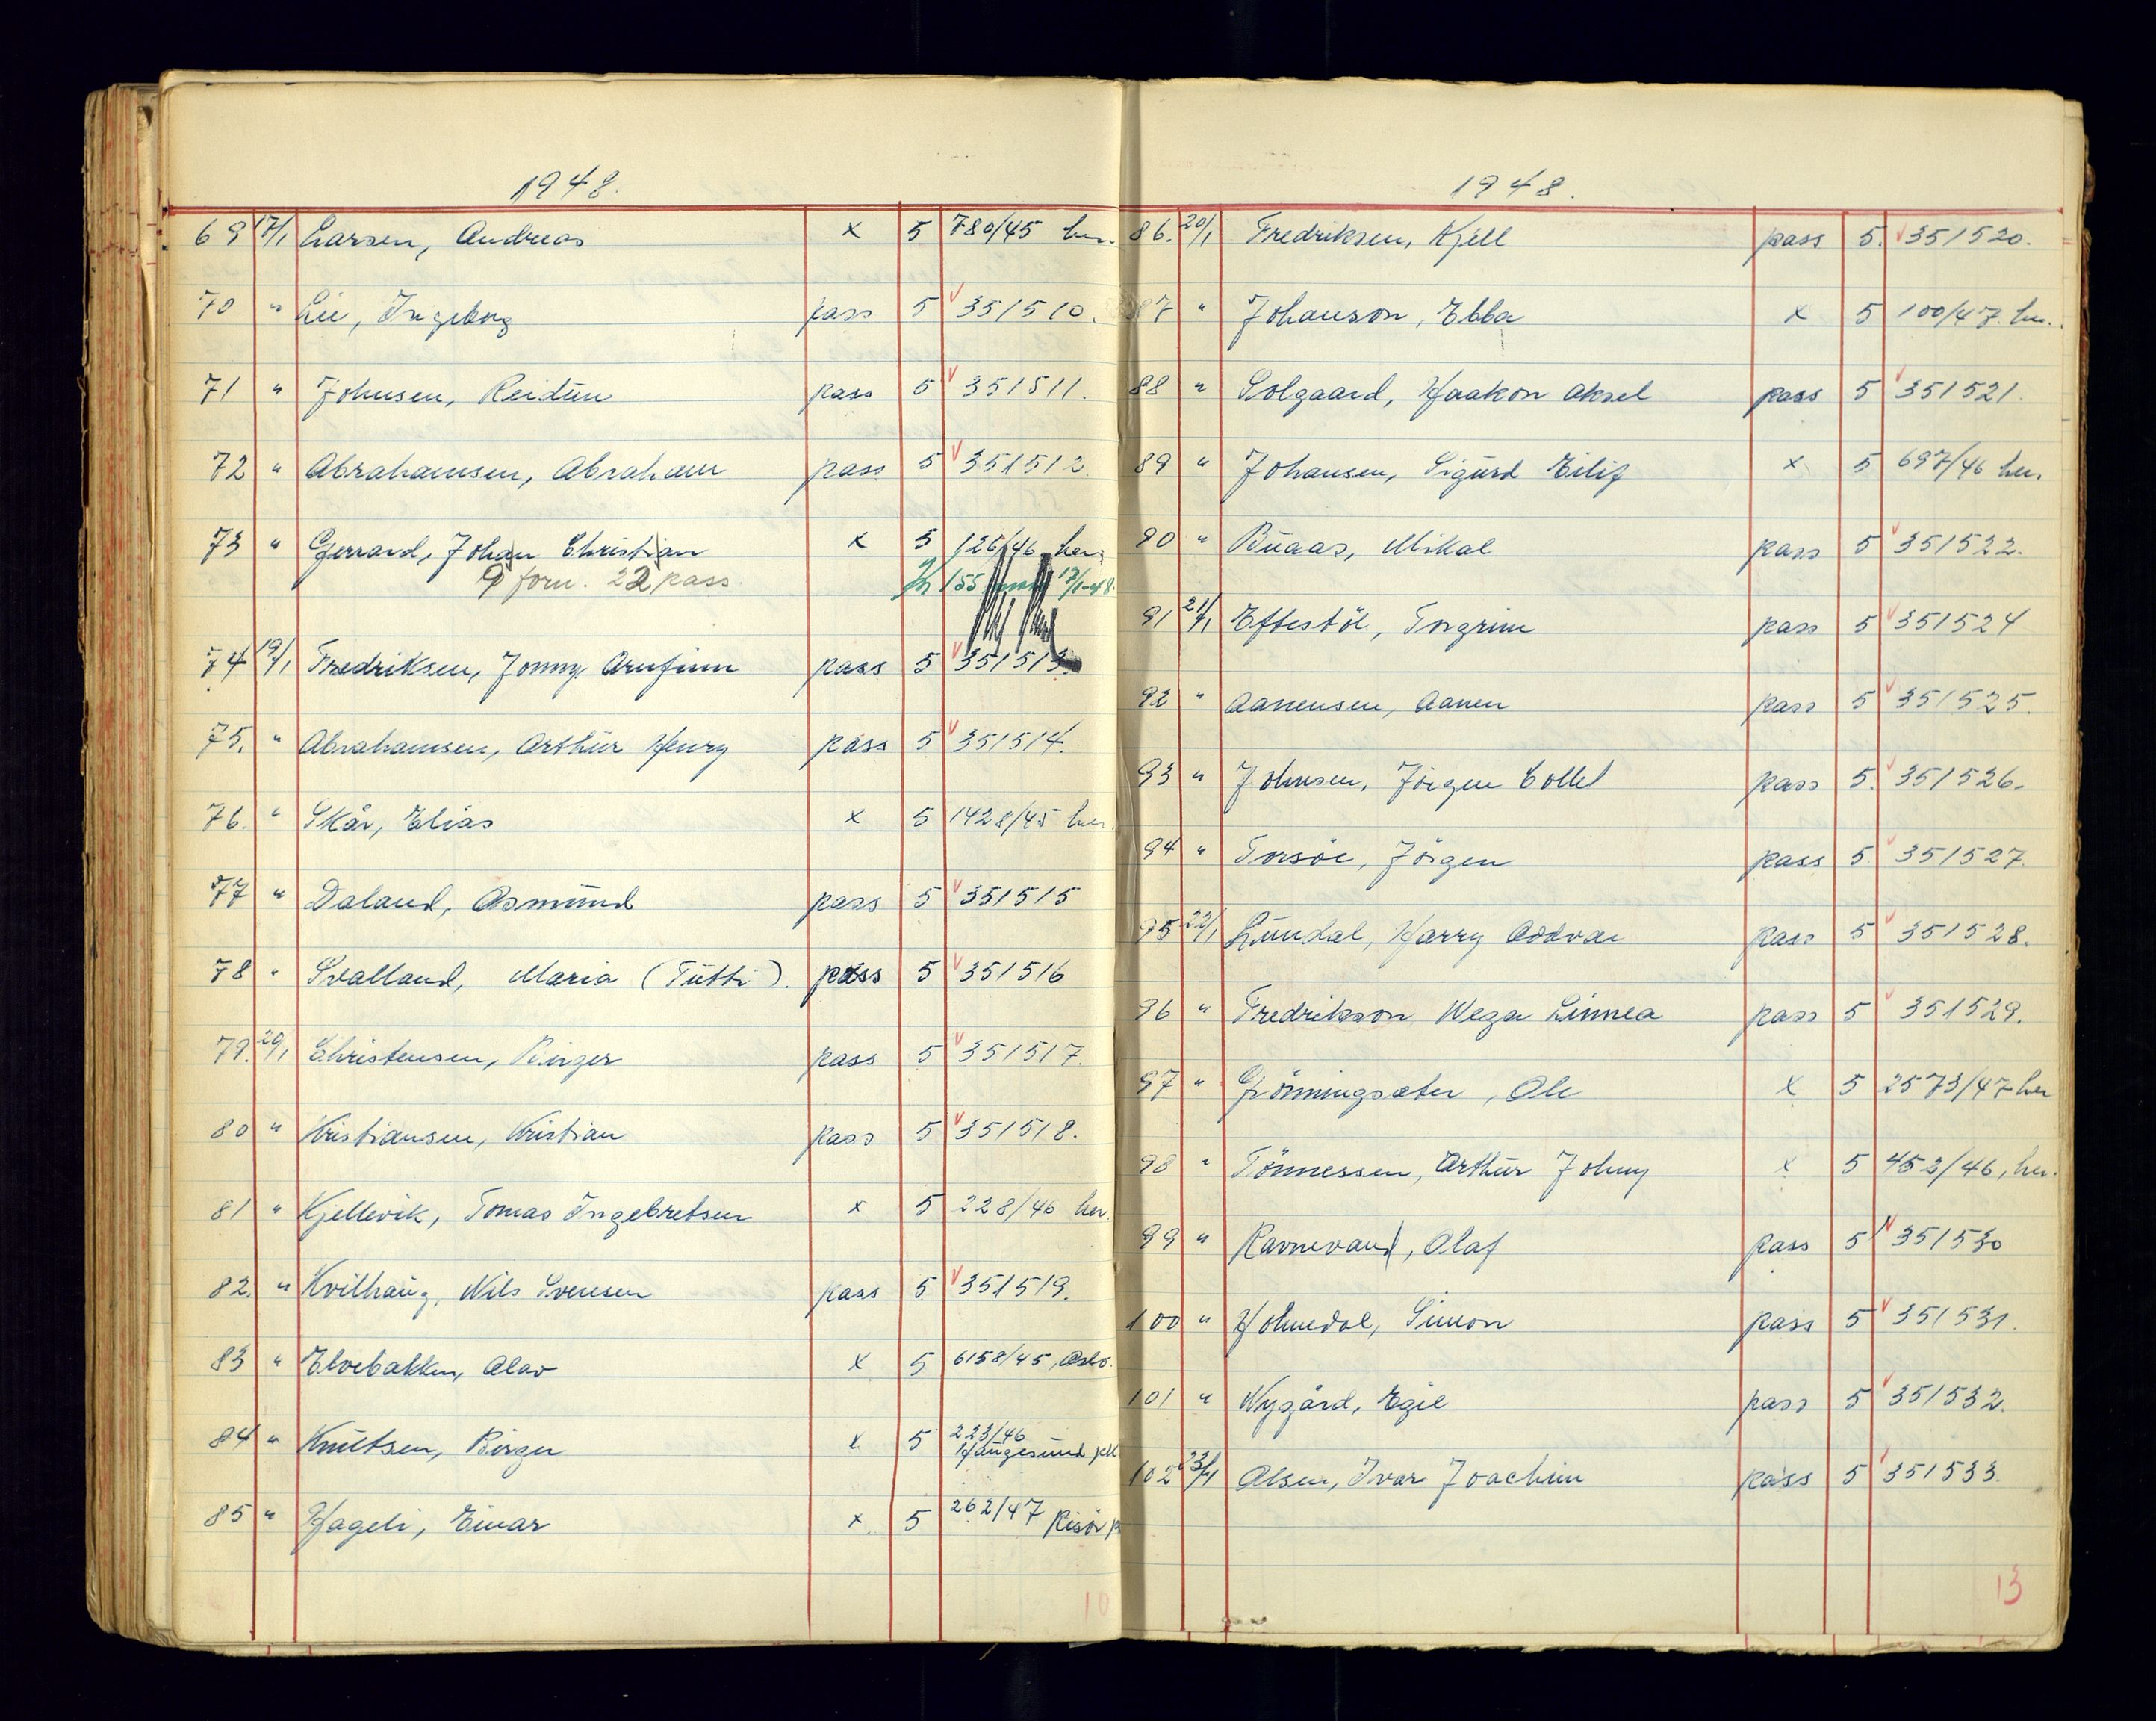 1948.
69 17/1 Larsen, Andreas x 5 780/45 her.
70 " Lie, Ingeborg pass 5 v 351510.
71 " Johnsen, Reidun pass 5 v 351511.
72 " Abrahamsen, Abraham pass 5 v 351512.
73 " Gjerrard, Johan Christian x 5 126/46 her.
forn. 22 pass. 155 17/1-48.
74 19/1 Fredriksen, Jonny Arnfinn pass 5 v 351513
75. " Abrahamsen, Arthur Henry pass 5 v 351514.
76. " Skår, Elias x 5 1428/45 her.
77 " Daland, Asmund pass 5 v 351515
78 " Svalland, Maria (Tutti). pass 5 v 351516
79. 20/1 Christensen, Birger pass 5 v 351517.
80 " Kristiansen, Kristian pass 5 v 351518.
81 " Kjellevik, Tomas Ingebretsen x 5 228/46 her.
82. " Kvilhaug, Nils Svensen pass 5 v 351519.
83 " Elvebakken, Olav x 5 6158/45, Oslo.
84 " Knutsen, Birger x 5 223/46
Haugesund pk
85 " Hageli, Einar x 5 262/47 Risör p
10
1948.
86. 20/1 Fredriksen, Kjell pass 5. v 351520.
87 " Johanson, Ebba x 5 100/47. her.
88 " Solgaard, Haakon Aksel pass 5 v 351521.
89 " Johansen, Sigurd Eilif x 5 697/46 her.
90 " Buaas, Mikal pass 5 v 351522.
91 21/1 Eftestöl, Torgrim pass 5 v 351524
92 " Aanensen, Aanen pass 5 v 351525.
93 " Johnsen, Jörgen Collet pass 5. v 351526.
94 " Torsöe, Jörgen pass 5. v 351527.
95 22/1 Lundal, Harry Oddvar pass 5 v 351528.
96 " Fredrikson Wega Linnea pass 5 v 351529.
97 " Grönningsæter, Ole x 5 2573/47 her
98 " Tönnessen, Arthur Johny x 5 453/46, her.
99 " Ravnevand, Olaf pass 5 v 351530
100 " Holmedal, Simon pass 5 v 351531.
101 " Nygård, Egil pass 5 v 351532.
102 23/1 Olsen, Ivar Joachim pass 5 v 351533.
13